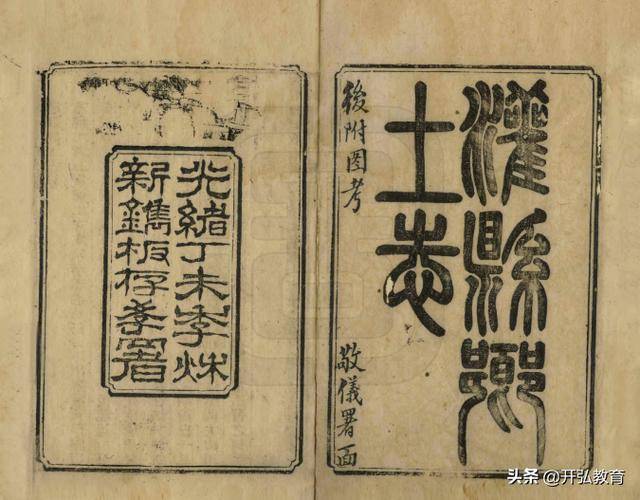 灌縣鄉
土志
後附圖考
敬儀署面
光緒丁未季秌
新鐫板存署
头条 @开弘教育